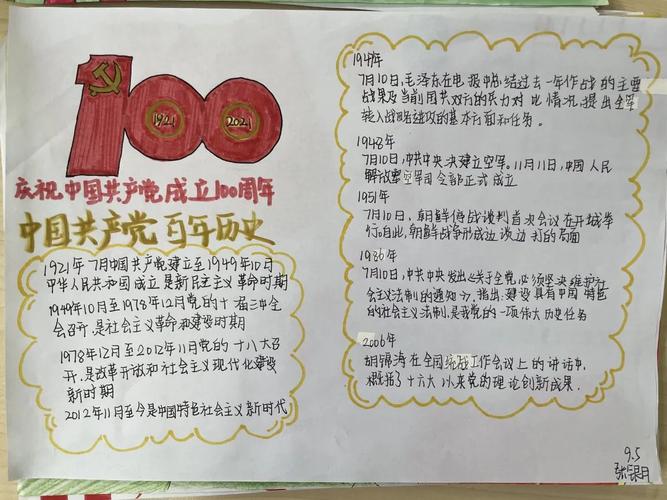 100
1921
2021
庆祝中国共产党成立100周年
中国共产党百年历史
1921年7月中国共产党建立至1949年10月
中华人民共和国成立是新民主义革命时期
1949年10月至1978年12月党的十一届三中全
会召开,是社会主义革命和建设时期
1978年12月至2012年11月党的十八大召
开,是改革开放和社会主义现代化建设
新时期
2012年11月至今是中国特色社会主义新时代
1947年
7月10日,毛泽东在电报中总结过去一年作战的主要
战果及当前国共双方的兵力对比情况,提出全军
转入战略进攻的基本方面和任务。
1948年
7月10日,中共中央决建立空军。11月11日,中国人民
解放军空军司令部正式成立
1951年
7月10日,朝鲜停战谈判首次会议在开城举
行自此,朝鲜战争形成边谈边打的局面
1986年
7月10日,中共中央发出《关于全党必须坚决维护社
会主义法制的通知》,指出,建设具有中国特色
的社会主义法制,是我党的一项伟大历史任务
2006年
胡锦涛在全国统战工作会议上的讲话中,
概括了十六大以来党的理论创新成果.
9.5